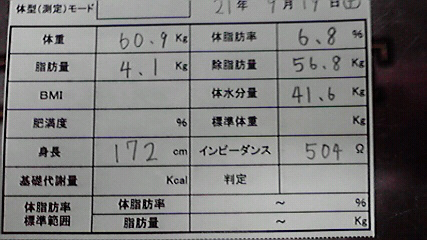 体型(測定)モード 21年 9月19日(土)
体重 60.9 Kg 体脂肪率 6.8 %
脂肪量 4.1 Kg 除脂肪量 56.8 Kg
BMI 体水分量 41.6 Kg
肥満度 % 標準体重 Kg
身長 172 cm インピーダンス 504 Ω
基礎代謝量 Kcal 判定
体脂肪率 体脂肪率 ～ %
標準範囲 脂肪量 ～ Kg